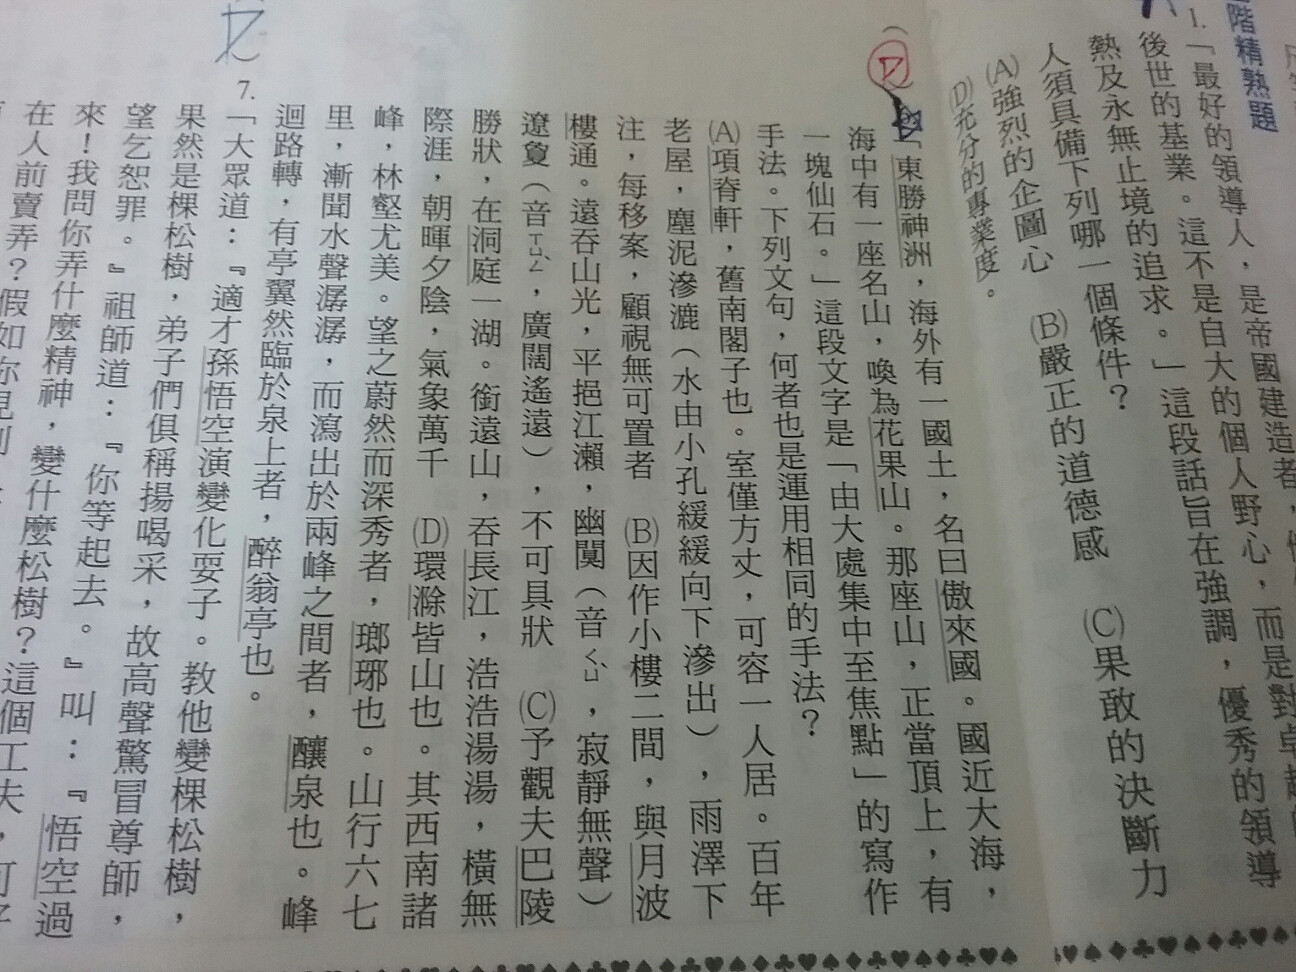 階精熟題
1.「最好的領導人，是帝國建造者，
後世的基業。這不是自大的個人野心，而是對卓越的
熱及永無止境的追求。」這段話旨在強調，優秀的領導
人須具備下列哪一個條件？
(A)強烈的企圖心 (B)嚴正的道德感 (C)果敢的決斷力
(D)充分的專業度。
「東勝神洲，海外有一國土，名曰傲來國。國近大海，
海中有一座名山，喚為花果山。那座山，正當頂上，有
一塊仙石。」這段文字是「由大處集中至焦點」的寫作
手法。下列文句，何者也是運用相同的手法？
(A)項脊軒，舊南閣子也。室僅方丈，可容一人居。百年
老屋，塵泥滲漉（水由小孔緩緩向下滲出），雨澤下
注，每移案，顧視無可置者 (B)因作小樓二間，與月波
樓通。遠吞山光，平挹江瀨，幽闃（音ㄑㄩˋ，寂靜無聲）
遼敻（音ㄒㄩㄥˋ，廣闊遙遠），不可具狀 (C)予觀夫巴陵
勝狀，在洞庭一湖。銜遠山，吞長江，浩浩湯湯，橫無
際涯，朝暉夕陰，氣象萬千 (D)環滁皆山也。其西南諸
峰，林壑尤美。望之蔚然而深秀者，瑯琊也。山行六七
里，漸聞水聲潺潺，而瀉出於兩峰之間者，釀泉也。峰
迴路轉，有亭翼然臨於泉上者，醉翁亭也。
7.「大眾道：『適才孫悟空演變化耍子。教他變棵松樹，
果然是棵松樹，弟子們俱稱揚喝采，故高聲驚冒尊師，
望乞恕罪。』祖師道：『你等起去。』叫：『悟空過
來！我問你弄什麼精神，變什麼松樹？這個工夫，可好
在人前賣弄？假如你見別